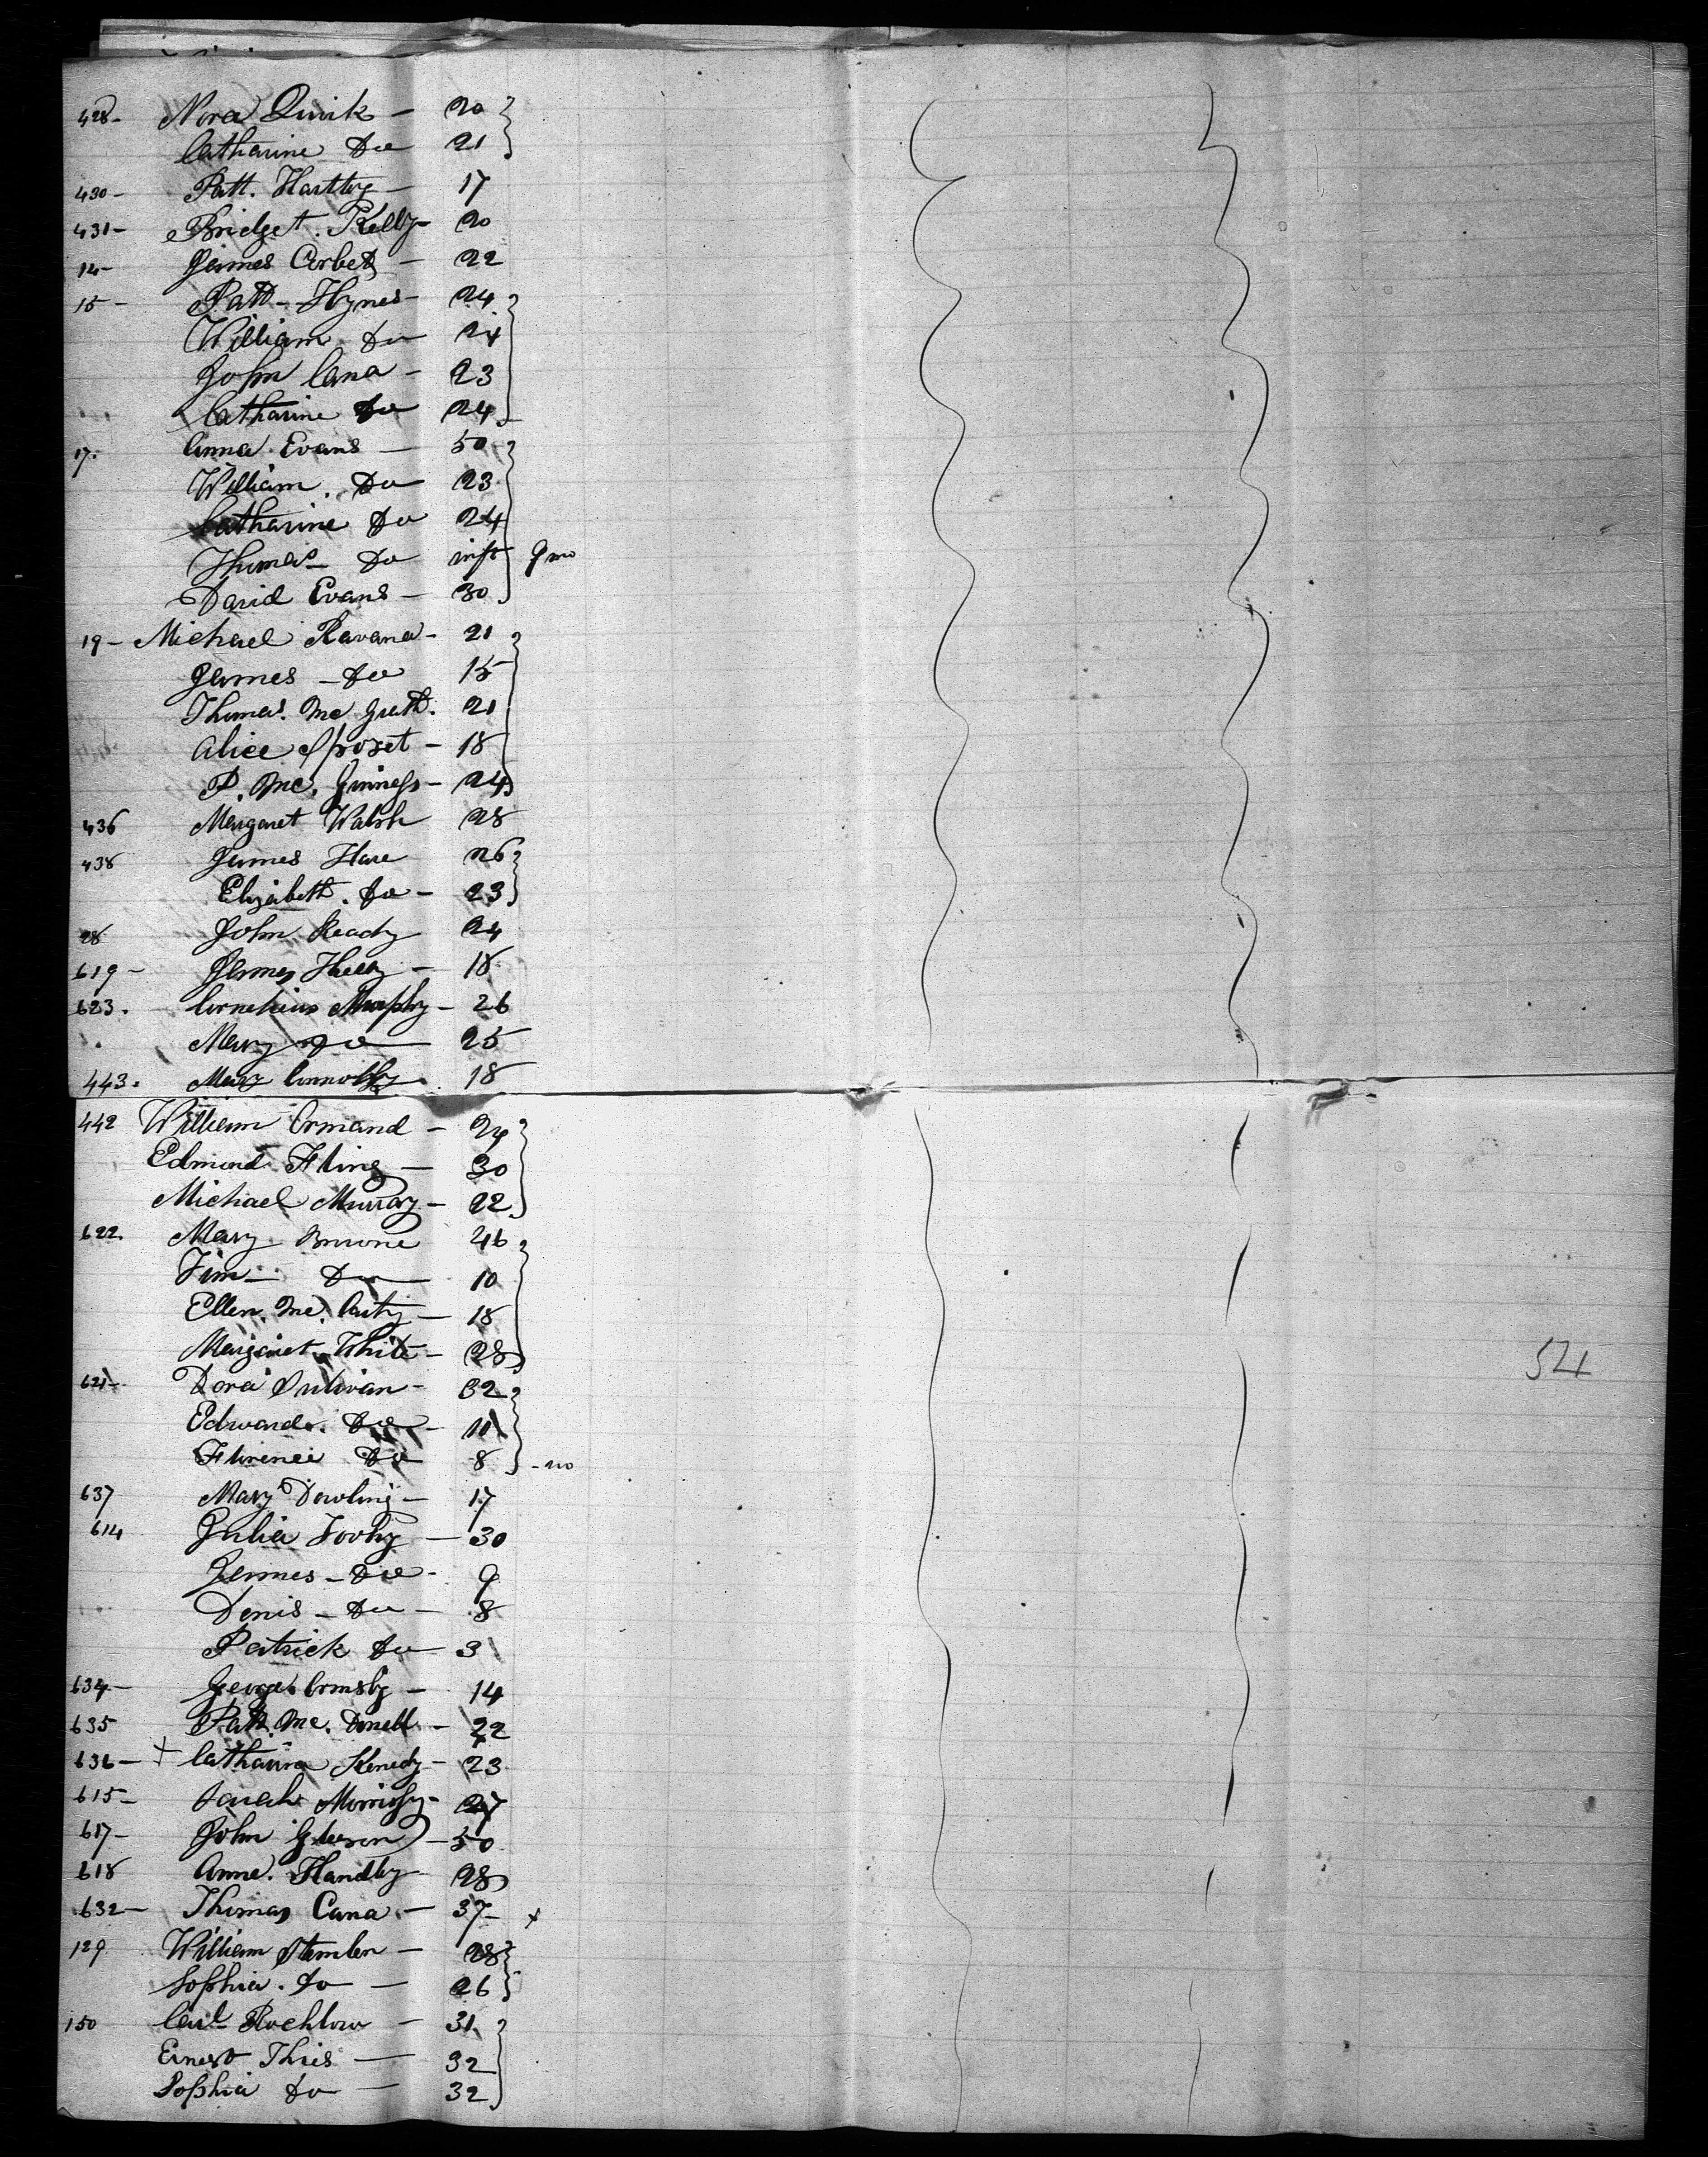 428- Nora Quirk - 20
Catharine Do 21
430- Patt. Hartley - 17
431- Bridget. Kelly - 20
14- James Corbet - 22
15- Patt - Hynes - 24
William. Do 24
John Cana - 23
Catharine Do 24
17. Anna. Evans - 50
William. Do 23
Catharine Do 24
Thomas Do inft 9 mo
David Evans - 30
19- Michael Kavana - 21
James - Do 15
Thomas. Mc Grath. 21
Alice - 18
P. Mc. Guiness - 24
436 Margaret Walsh 28
438 James Hare 26
Elizabeth. Do - 23
28 John Ready 24
619- James - 18
623. Cornelius Murphy - 26
Mary Do 25
443. Mary Connolly 18
442 William Ormand - 24
Edmond Fling - 30
Michael Murray - 22
622. Mary 46
Tim - Do 10
Ellen. Mc. Carty - 18
Margaret White - 28
621- Dora Sulivan - 32
Edward. Do - 10
Florence Do 8 - no
637 Mary Dowling - 17
614 Julia Toohy - 30
James - Do - 9
Denis - Do - 8
Patrick Do 3
634- George Ormsby - 14
635 Patt. Mc. Donell - 22
636- + Catharina Kenedy - 23
615- Sarah Morrissy - 27
617- John Gleeson - 50
618 Anne. Handley 28
632- Thomas Cana. - 37- x
129 William Stemler - 28
Sophia. Do - 26
150 Carl Rochlow - 31
Ernest Thies - 32
Sophia Do - 32
521